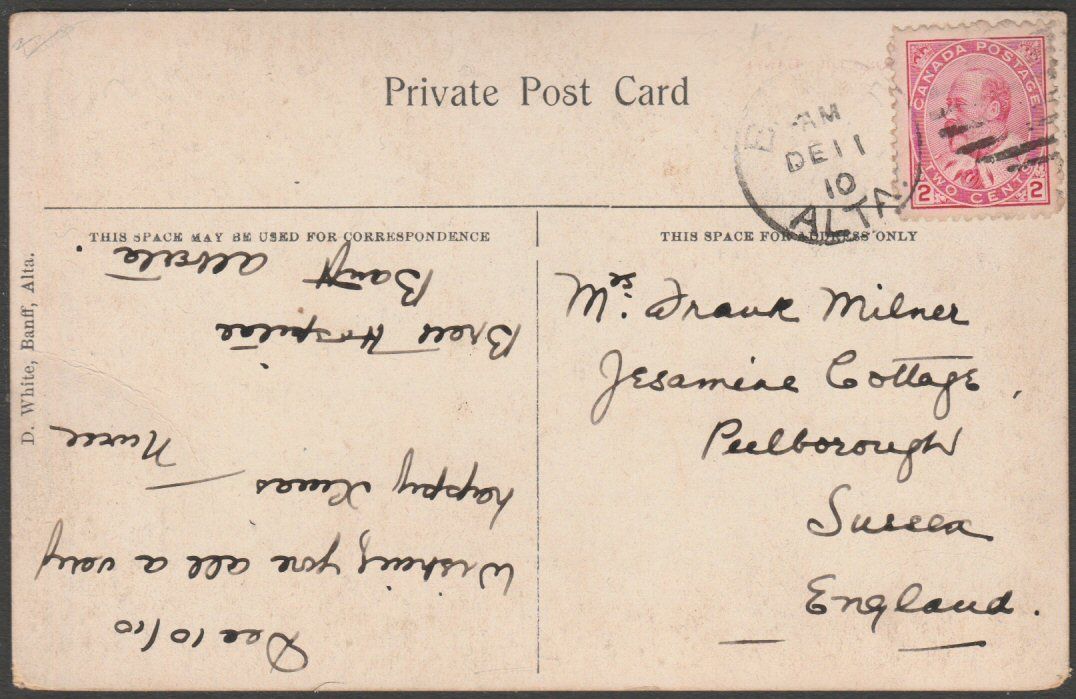 Private Post Card
CANADA POSTAGE
TWO CENTS
2 2
AM
DE 11
10
ALTA.
THIS SPACE MAY BE USED FOR CORRESPONDENCE
THIS SPACE FOR ADDRESS ONLY
D. White, Banff, Alta.
Dec 10/10
Wishing you all a very
happy Xmas —
Nurse
Brett Hospital
Banff
Alberta.
Frank Milner
Jesamine Cottage,
Pulborough
Sussex
England.